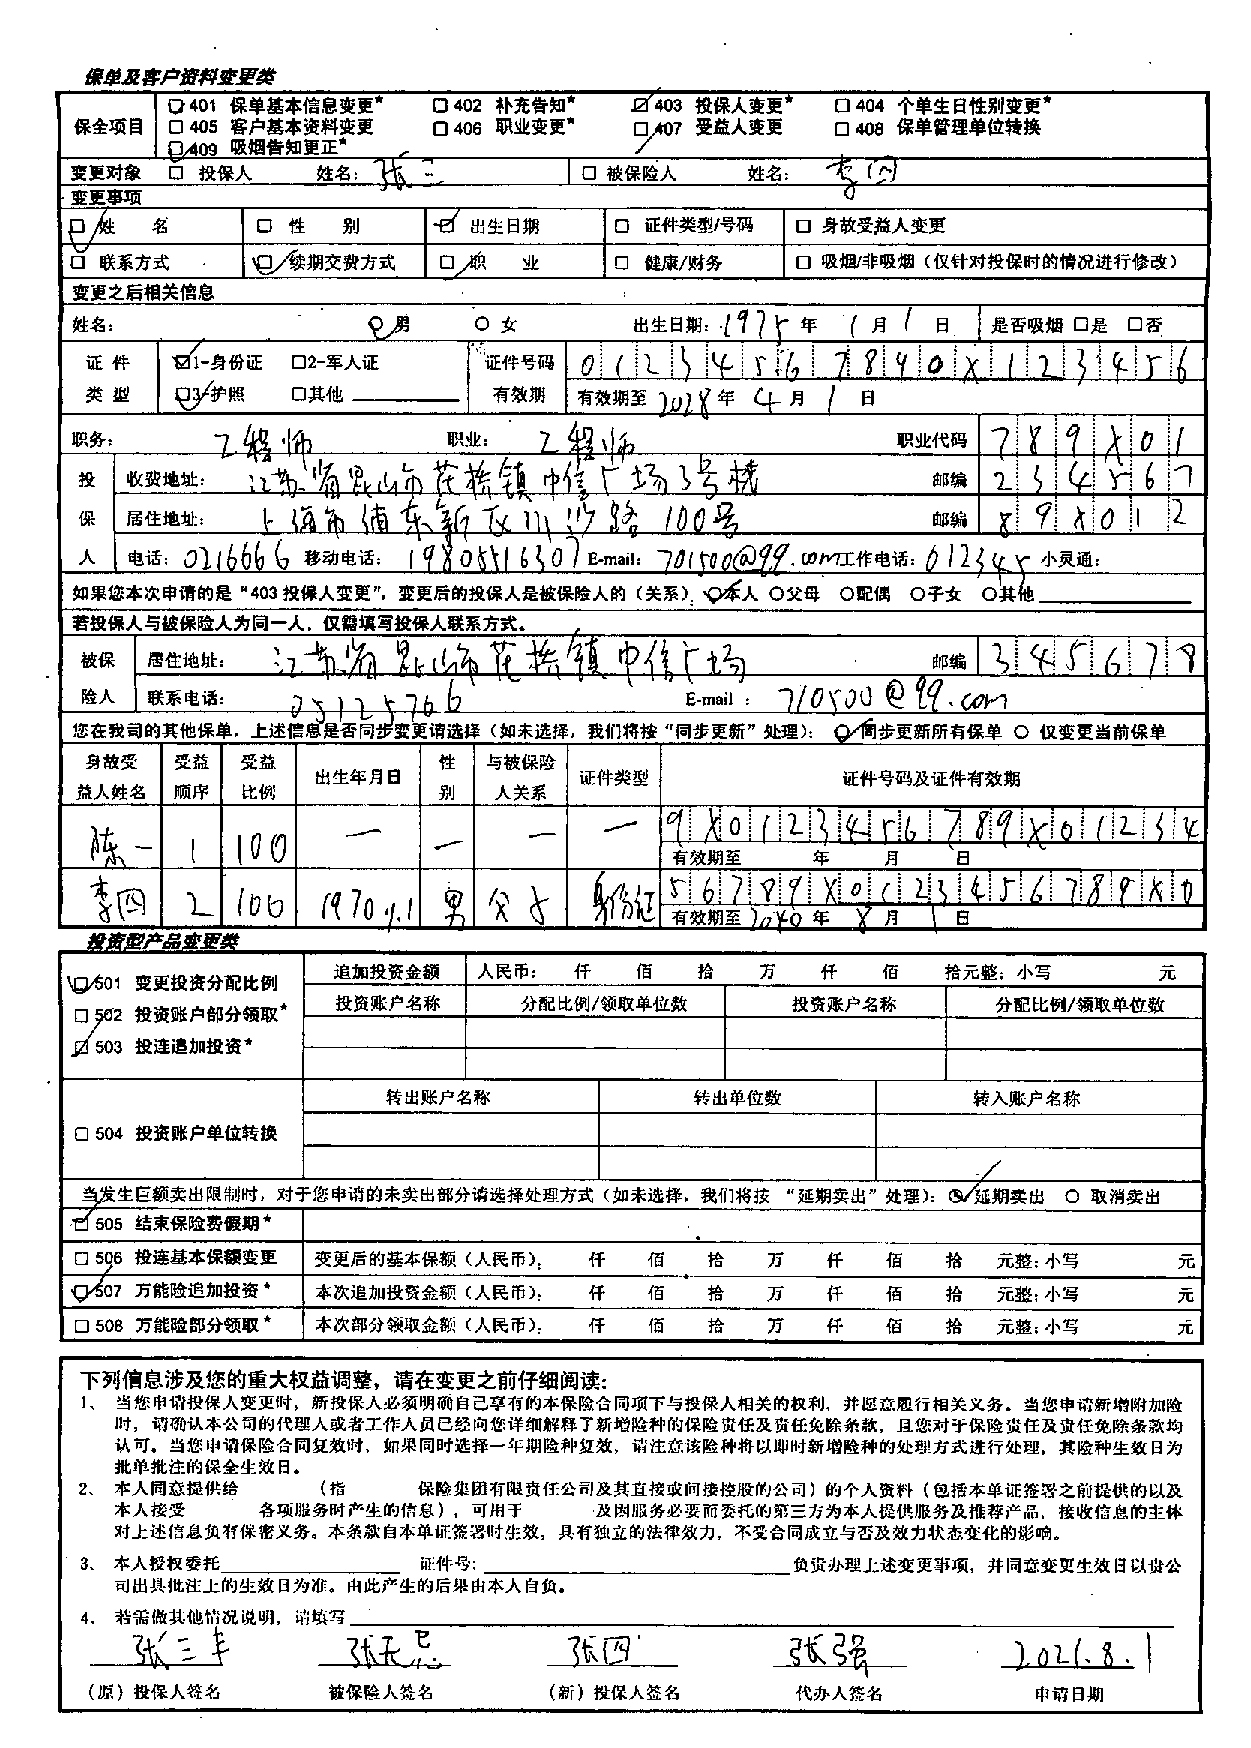 保单及客户资料变更类
保全项目 401 保单基本信息变更* 402 补充告知* 403 投保人变更* 404 个单生日性别变更*
405 客户基本资料变更 406 职业变更* 407 受益人变更 408 保单管理单位转换
409 吸烟告知更正*
变更对象 投保人 姓名: 张三 被保险人 姓名: 李四
变更事项
姓 名 性 别 出生日期 证件类型/号码 身故受益人变更
联系方式 续期交费方式 职 业 健康/财务 吸烟/非吸烟(仅针对投保时的情况进行修改)
变更之后相关信息
姓名: 男 女 出生日期: 1975 年 1 月 1 日 是否吸烟 是 否
证 件 1-身份证 2-军人证 证件号码 01234567890X123456
类 型 3-护照 其他 有效期 有效期至 2028 年 4 月 1 日
职务: 工程师 职业: 工程师 职业代码 789X01
投 收费地址: 江苏省昆山市花桥镇中信广场3号楼 邮编 234567
保 居住地址: 上海市浦东新区川沙路100号 邮编 89X012
人 电话: 0216666 移动电话: 19805516307 E-mail: 701500@qq.com 工作电话: 012345 小灵通:
如果您本次申请的是“403投保人变更”, 变更后的投保人是被保险人的(关系): 本人 父母 配偶 子女 其他
若投保人与被保险人为同一人, 仅需填写投保人联系方式.
被保 居住地址: 江苏省昆山市花桥镇中信广场 邮编 345678
险人 联系电话: 05125766 E-mail: 710500@qq.com
您在我司的其他保单, 上述信息是否同步变更请选择(如未选择, 我们将按“同步更新”处理): 同步更新所有保单 仅变更当前保单
身故受 受益 受益 出生年月日 性 与被保险 证件类型 证件号码及证件有效期
益人姓名 顺序 比例 别 人关系
陈一 1 100 一 一 一 一 9X0123456789X01234
有效期至 年 月 日
李四 2 100 1970.1.1 男 父子 身份证 56789X0123456789X0
有效期至 2040 年 8 月 1 日
投资型产品变更类
501 变更投资分配比例 追加投资金额 人民币: 仟 佰 拾 万 仟 佰 拾元整: 小写 元
502 投资账户部分领取* 投资账户名称 分配比例/领取单位数 投资账户名称 分配比例/领取单位数
503 投连追加投资*
转出账户名称 转出单位数 转入账户名称
504 投资账户单位转换
当发生巨额卖出限制时, 对于您申请的未卖出部分请选择处理方式(如未选择, 我们将按 “延期卖出” 处理): 延期卖出 取消卖出
505 结束保险费假期*
506 投连基本保额变更 变更后的基本保额(人民币): 仟 佰 拾 万 仟 佰 拾 元整: 小写 元
507 万能险追加投资* 本次追加投资金额(人民币): 仟 佰 拾 万 仟 佰 拾 元整: 小写 元
508 万能险部分领取* 本次部分领取金额(人民币): 仟 佰 拾 万 仟 佰 拾 元整: 小写 元
下列信息涉及您的重大权益调整, 请在变更之前仔细阅读:
1、 当您申请投保人变更时, 新投保人必须明确自己享有的本保险合同项下与投保人相关的权利, 并愿意履行相关义务。当您申请新增附加险
时, 请确认本公司的代理人或者工作人员已经向您详细解释了新增险种的保险责任及责任免除条款, 且您对于保险责任及责任免除条款均
认可。当您申请保险合同复效时, 如果同时选择一年期险种复效, 请注意该险种将以即时新增险种的处理方式进行处理, 其险种生效日为
批单批注的保全生效日。
2、 本人同意提供给 (指 保险集团有限责任公司及其直接或间接控股的公司)的个人资料(包括本单证签署之前提供的以及
本人接受 各项服务时产生的信息), 可用于 及因服务必要而委托的第三方为本人提供服务及推荐产品, 接收信息的主体
对上述信息负有保密义务。本条款自本单证签署时生效, 具有独立的法律效力, 不受合同成立与否及效力状态变化的影响。
3、 本人授权委托 证件号: 负责办理上述变更事项, 并同意变更生效日以贵公
司出具批注上的生效日为准。由此产生的后果由本人自负。
4、 若需做其他情况说明, 请填写
张三丰 张无忌 张四 张强 2021.8.1
(原)投保人签名 被保险人签名 (新)投保人签名 代办人签名 申请日期